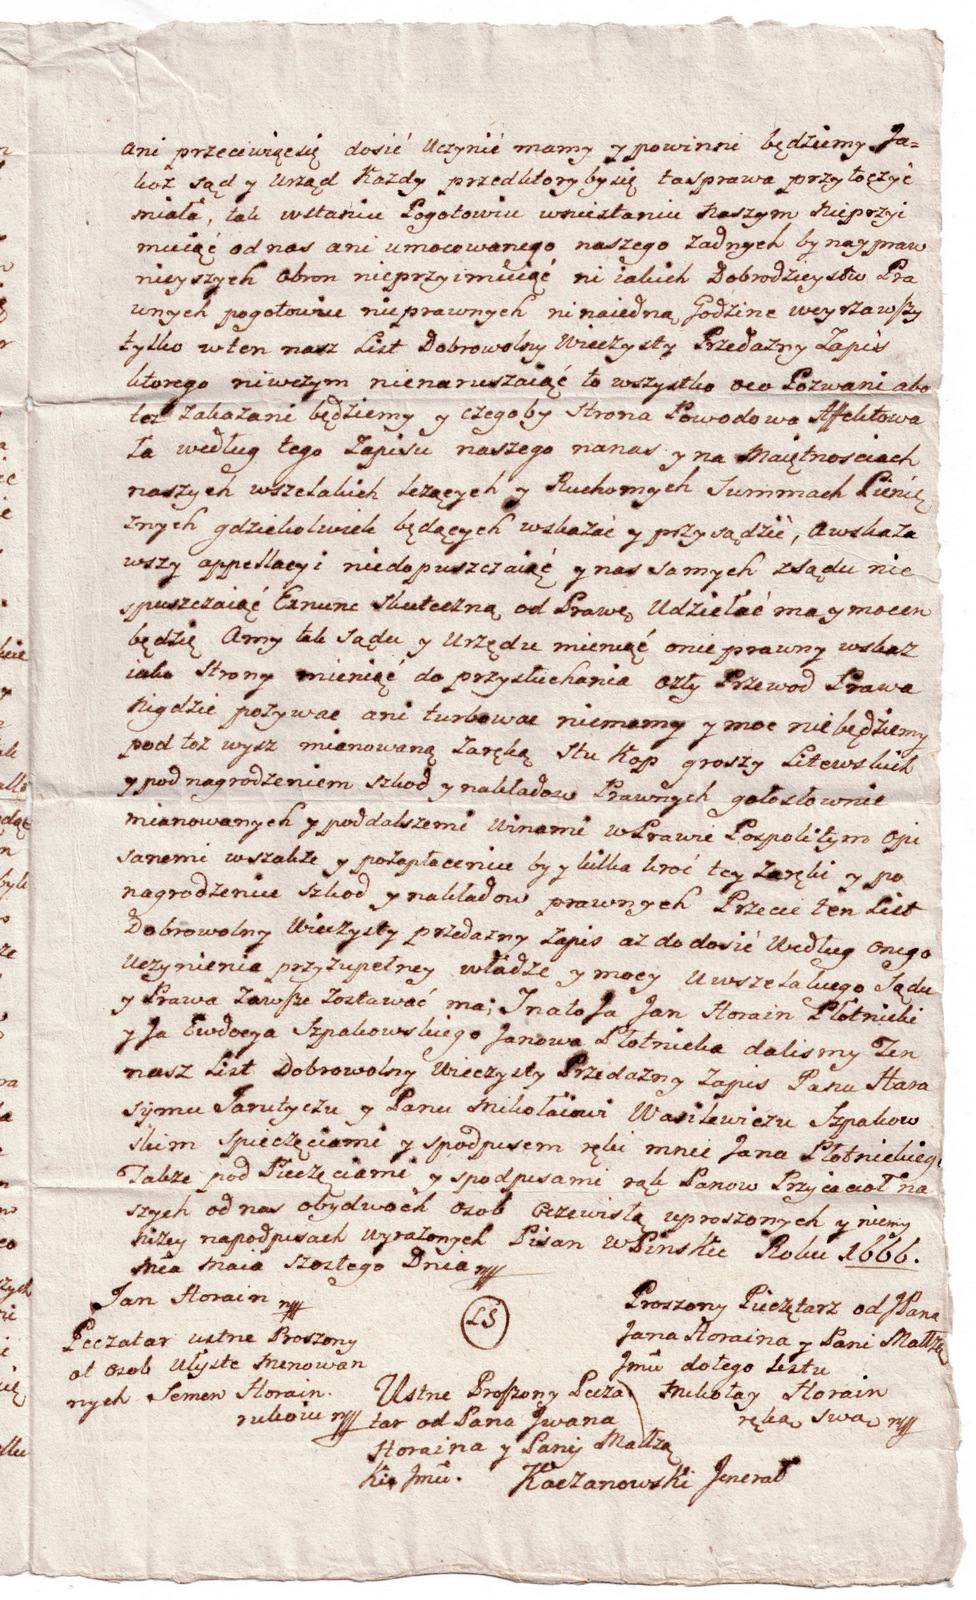 ani przeciwięcsię dosić Uczynić mamy y powinni będziemy Ja=
koż sąd y Urząd Każdy przedktorybysię tasprawa przytoczyć
miała, tak wstaniu Pogotowiu wniestaniu Naszym Nieprzyi
muiąć odnas ani umocowanego naszego żadnych by nay praw
nieyszych obron nieprzyimuiąć ni iakich Dobrodzieystw Pra
wnych pogotowiu nieprawnych ninaiedną Godzine weyrzawszy
tylko w ten nasz List Dobrowolny Wieczysty Przedażny Zapis
ktorego niwczym nienaruszaiąć to wszystko oco Pozwani abo
też zakazani będziemy y czegoby Strona Powodowa Affektowa
ła według tego Zapisu naszego nanas y na Maiętnosciach
naszych wszelakich leżących y Ruchomych Summach Pienię
żnych gdziekolwiek będących wskazać y przysądzić, a wskaza
wszy appellacyi niedopuszczaiąć y nas samych zsądu nie
spuszczaiąć Exnunc skuteczną od Prawę Udziełać maą y mocen
będzię Amy tak Sądu y Urzędu mieniąć onieprawny wskaz
iako Strony mieniąć do przysłuchania ozły Przewod Prawa
Nigdzie pozywac ani turbowac niemamy y moc niebędziemy
pod toż wysz mianowaną Zaręką Stu Kop groszy Litewskich
y pod nagrodzeniem szkod y nakładow Prawnych gołosłownie
mianowanych y poddalszemi Winami wPrawie Pospolitym Opi
sanemi wszakże y pozapłaceniu by y kilka kroć tey Zaręki y po
nagrodzeniu szkod y nakładow prawnych Przecie ten List
Dobrowolny Wieczysty przedazny Zapis aż do dosić Według Onego
Uczynienia przyzupełney władze y mocy Uwszelakiego Sądu
y Prawa Zawsze Zostawać ma; Inato Ja Jan Horain Płotnicki
y Ja Ewdocya Szpakowskiego Janowa Płotnicka dalismy Ten
nasz List Dobrowolny Wieczysty Przedażny Zapis Panu Hara
symu Jarutyczu y Panu Mikołaiowi Wasilewiczu Szpakow
skim Spieczęciami y spodpisem ręki mnie Jana Płotnickiego
Także pod Pieczęciami y spodpisami rąk Panow Przyiacioł na
szych od nas obydwoch osob Oczewisto uproszonych y niemy
Niżey napodpisach wyrażonych Pisan w Pinskie Roku 1666.
Mca Maia Szostego Dnia
Jan Horain
LS
Peczatar ustne Proszony
ot osob Wyste menowan
nych Semen Horain
rukoiu
Ustne Proszony Pecza
tar od Pana Jwana
Horaina y Panij Małżą
Kie Jmu.
Kaczanowski Jenerał
Proszony Pieczętarz od JPana
Jana Horaina y Pani Małżą
Jmu dotego Listu
Mikołay Horain
ręką swą